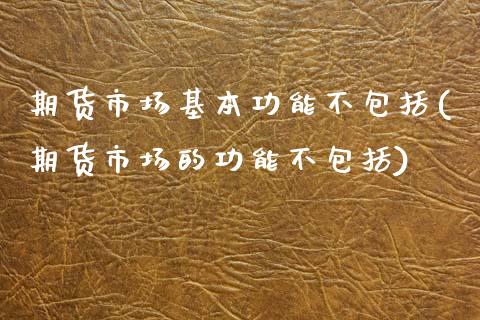 期货市场基本功能不包括(
期货市场的功能不包括)